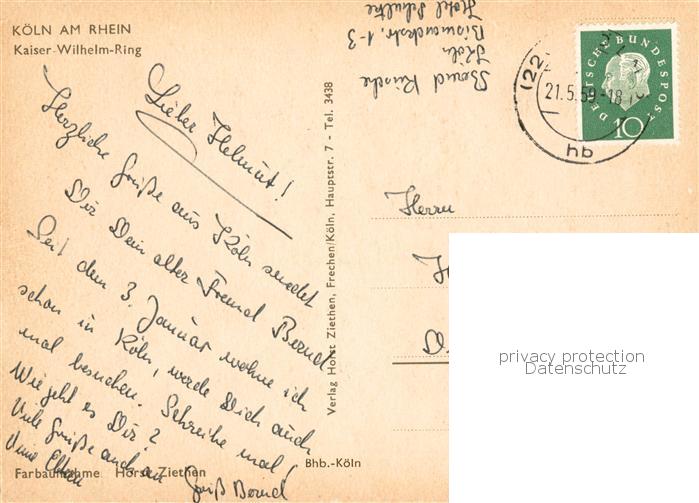 KÖLN AM RHEIN
Kaiser-Wilhelm-Ring
Lieber Helmut!
Herzliche Grüße aus Köln sendet
Dir Dein alter Freund Bernd
Seit dem 3. Januar wohne ich
schon in Köln, werde Dich auch
mal besuchen. Schreibe mal!
Wie geht es Dir?
Viele Grüße auch an
Deine Eltern
Gruß Bernd
Farbaufnahme: Horst Ziethen
Bhb.-Köln
Verlag Horst Ziethen, Frechen/Köln, Hauptstr. 7 - Tel. 3438
Bernd
Köln
Bismarckstr. 1-3
Hotel Schultze
(22
21.5.59-18
hb
DEUTSCHE BUNDESPOST
10
Herrn
privacy protection
Datenschutz